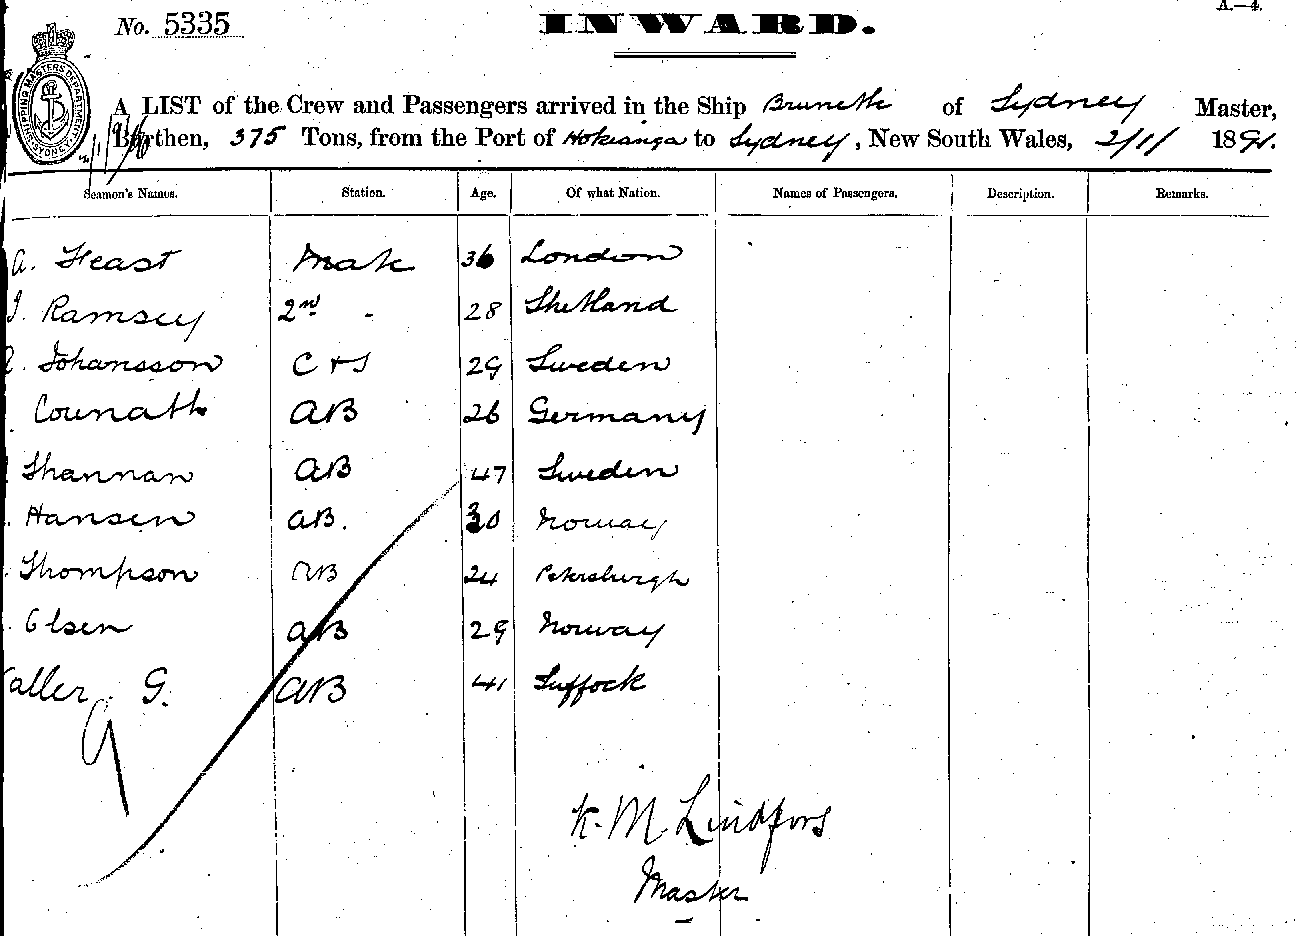 A.—4.
No. 5335 INWARD.
A LIST of the Crew and Passengers arrived in the Ship Brunette of Sydney Master,
Burthen, 375 Tons, from the Port of Hokianga to Sydney, New South Wales, 2/1/ 1891.
Seamen's Names. Station. Age. Of what Nation. Names of Passengers. Description. Remarks.
A. Feast Mate 36 London
J. Ramsey 2nd - 28 Shetland
Johansson C & S 29 Sweden
Counath AB 26 Germany
Shannan AB 47 Sweden
Hansen AB. 30 Norway
Thompson AB 24 Petersburgh
Olsen AB 29 Norway
aller. G. AB 41 Suffock
9
K. M. Lindfors
Master
SHIPPING MASTERS DEPARTMENT SYDNEY